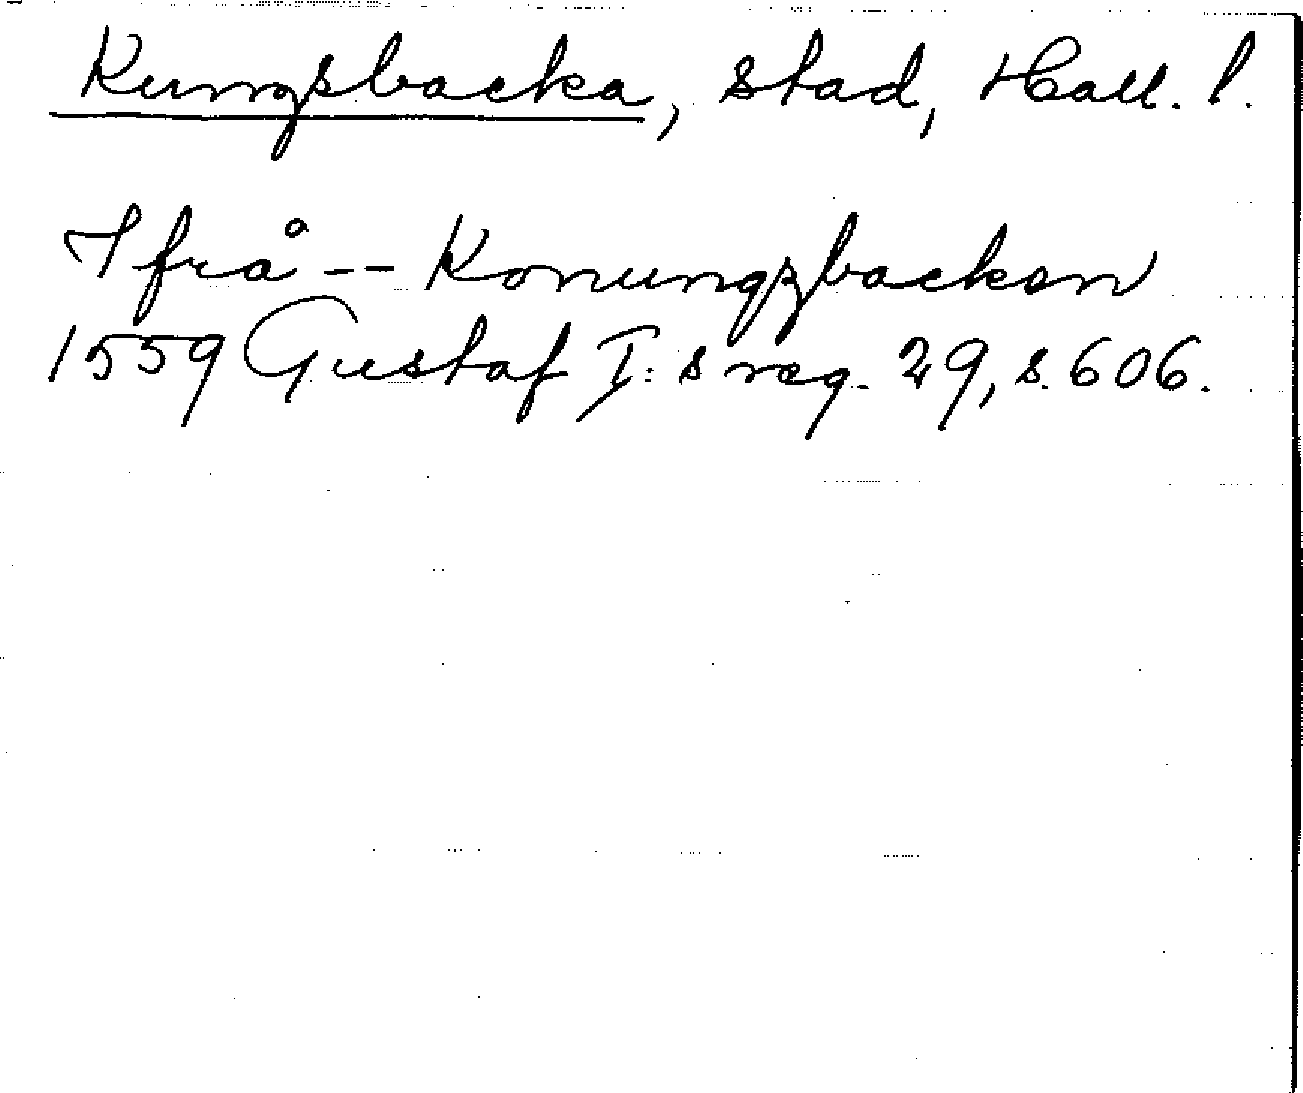 Kungsbacka, stad, Hall. l.
Ifrå -- Konungzbacken
1559 Gustaf I:s reg. 29, s. 606.